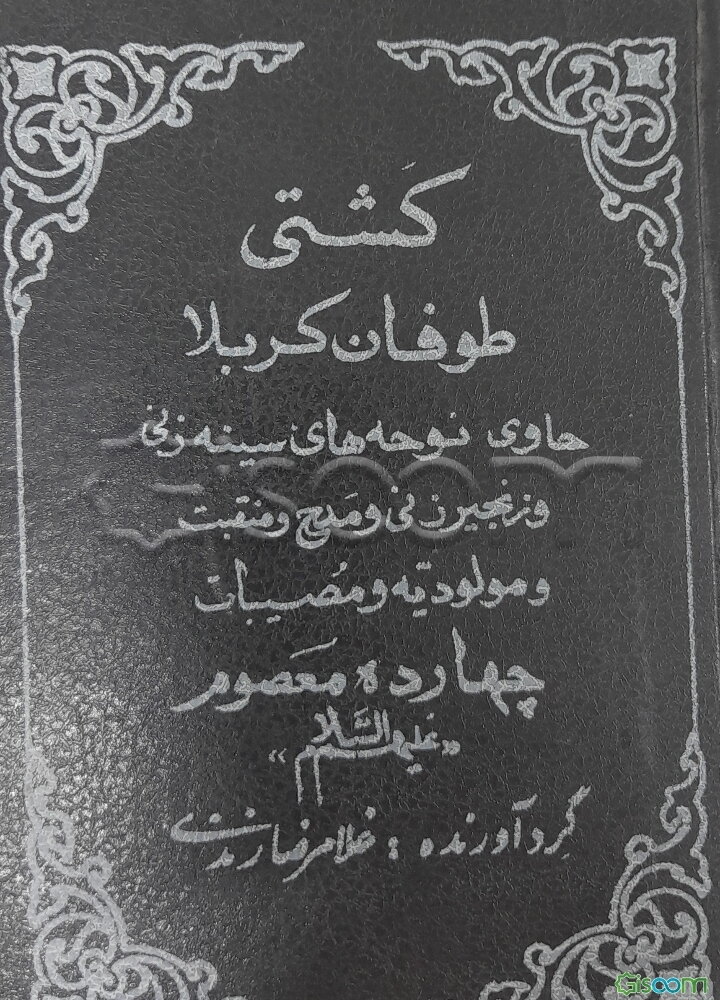 کَشتی
طوفان کربلا
حاوی نوحه های سینه زنی
و زنجیر زنی و مَدح و منقبت
و مولودیّه و مُصیبات
چهارده معَصوم
«علیهم السَّلام»
گِردآورنده : غلامرضا زندی
Gisoom
Gisoom